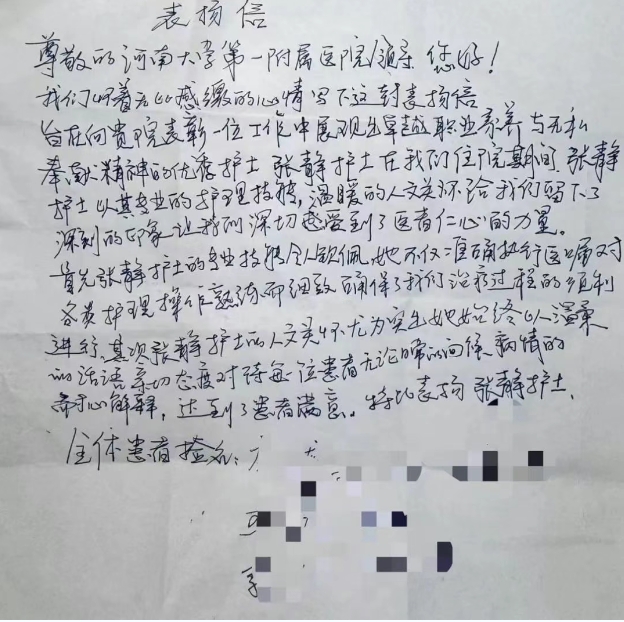 表扬信
尊敬的河南大学第一附属医院领导 您好！
我们怀着无比感激的心情写下这封表扬信
旨在向贵院表彰一位工作中展现出卓越职业素养与无私
奉献精神的优秀护士 张静护士在我们住院期间 张静
护士以其专业的护理技能，温暖的人文关怀给我们留下了
深刻的印象 让我们深切感受到了医者仁心的力量。
首先张静护士的专业技能令人钦佩，她不仅准确执行医嘱对
各类护理操作熟练而细致 确保了我们治疗过程的顺利
进行，其次张静护士的人文关怀尤为突出她始终以温柔
的话语亲切态度对待每位患者无论的问候病情的
耐心解释，达到了患者满意。特此表扬 张静护士。
全体患者签名：